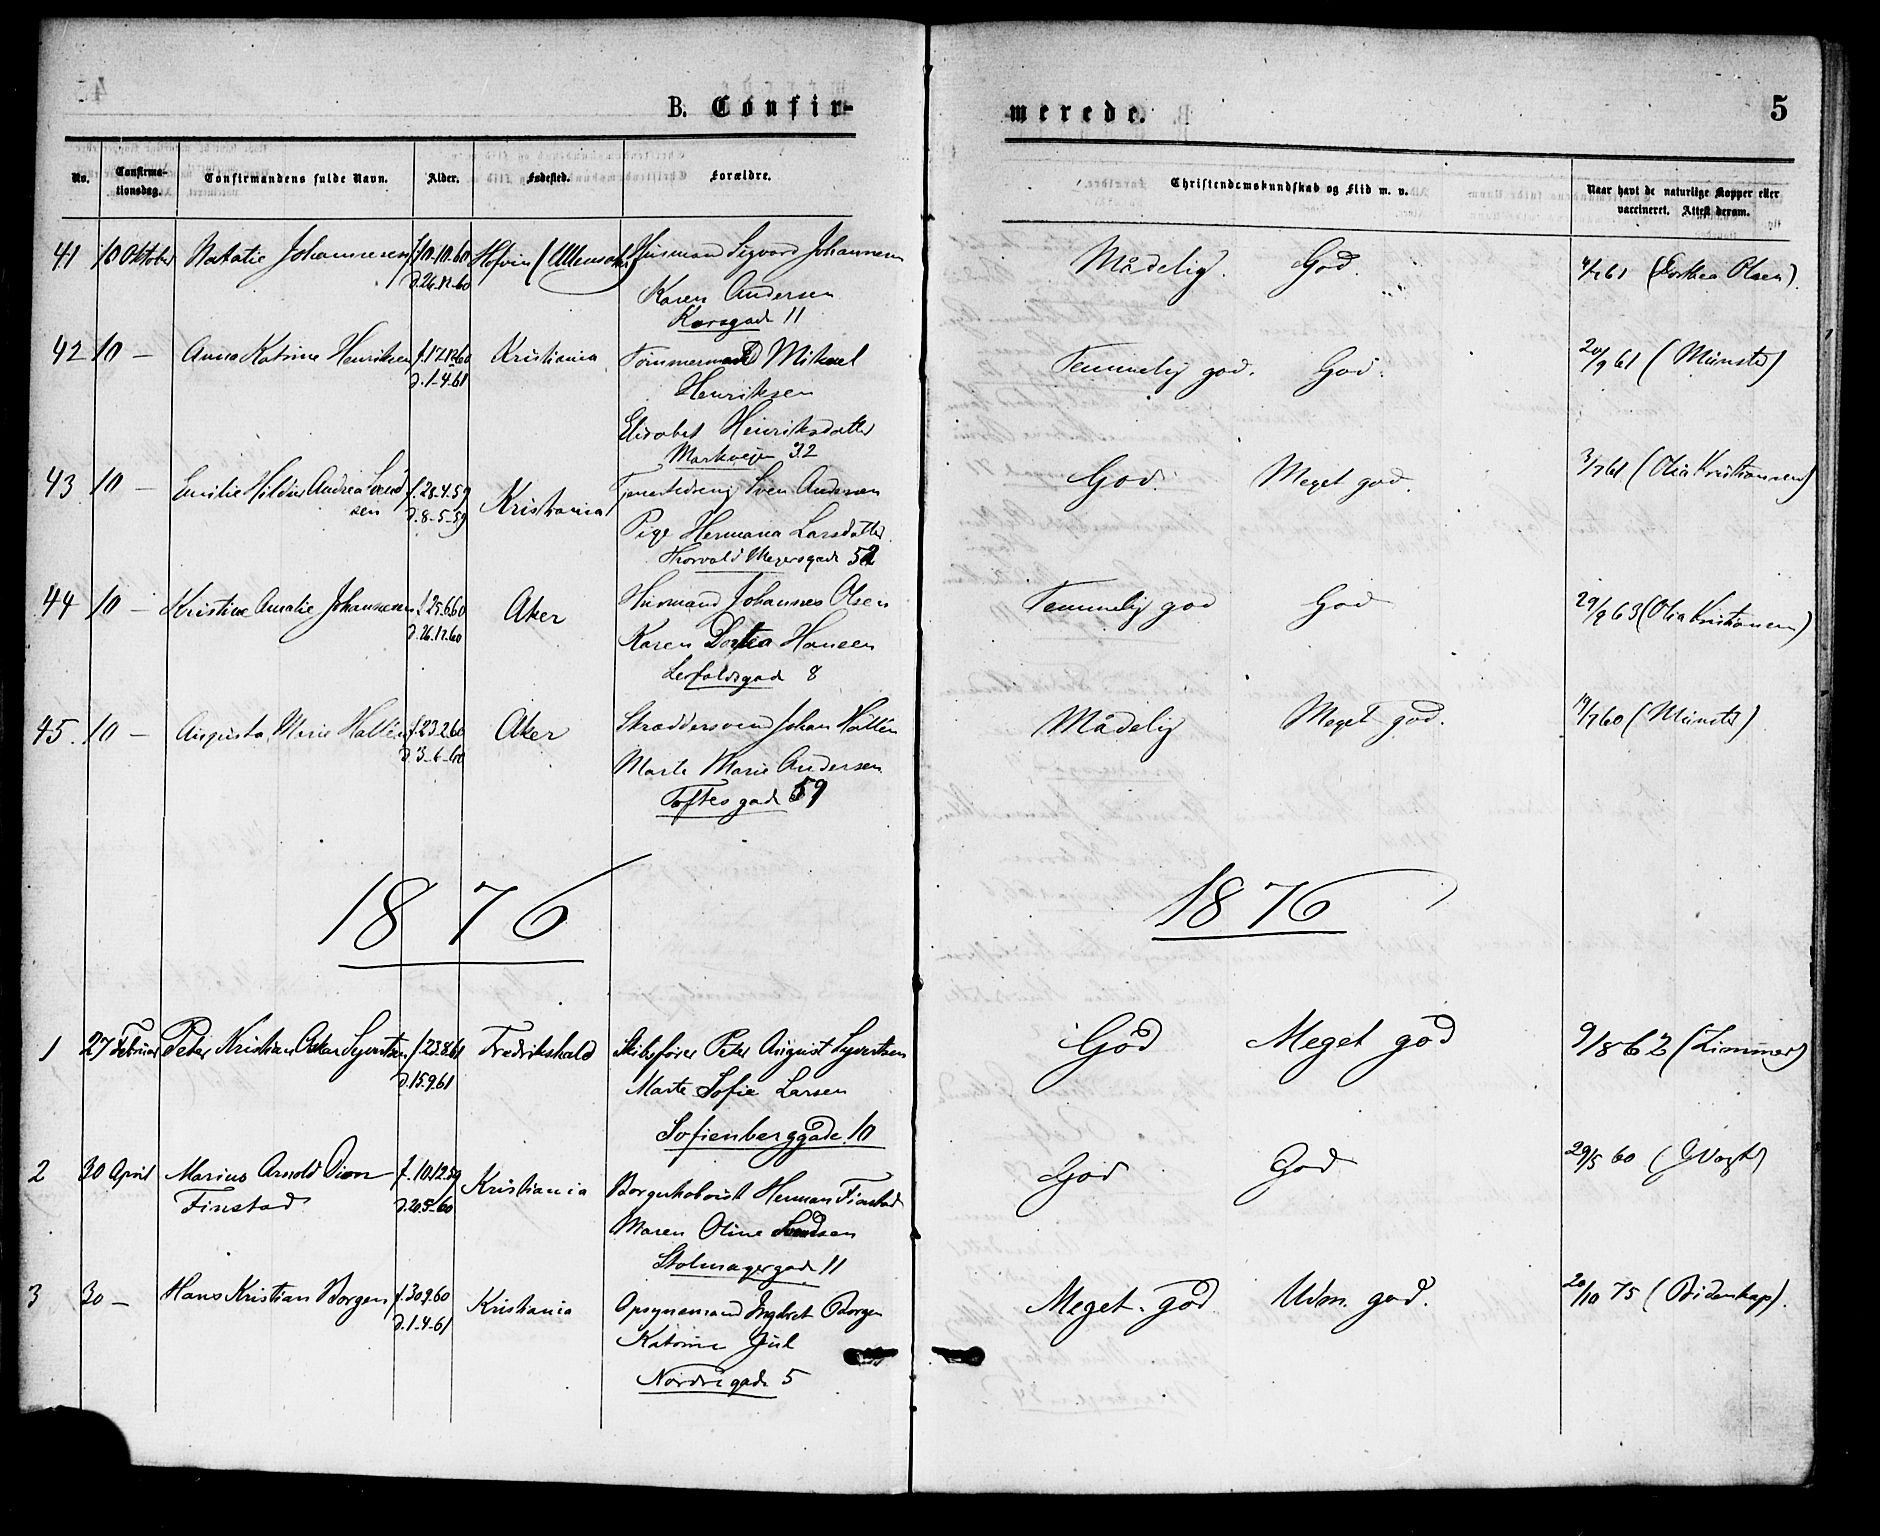 B. Confir-
merede.
5
No.
Confirma-
tionsdag.
Confirmandens fulde Navn.
Alder.
Fødested.
Forældre.
Christendomskundskab og Flid m. v.
Naar havt de naturlige Kopper eller
vaccineret. Attest derom.
41 10 Oktober Natalie Johannesen f.10-10-60 Hofvin (Ullensaker) Husmand Sigvard Johannesen Mådelig. God. 4/7 61 (Dorthea Olsen).
d.26.12-60
Karen Andersen
Korsgade 11
42 10 — Anna Katrine Henriksen f.17.12.60 Kristiania Tømmermand Mikael Temmelig god. God. 20/9 61 (Münster)
d.1-4-61
Henriksen
Elisabet Henriksdatter
Markveien 32
43 10 — Emilie Hilda Andrea Svend f.28-4-59 Kristiania Tjenestedreng Sven Andersen God. Meget god. 3/7 61 (Olia Kristiansen)
sen d.8-5-59
Pige Hermana Larsdatter
Thorvald Meyersgade 52
44 10 — Kristine Amalie Johannesen f.25.6.60 Aker Husmand Johannes Olsen Temmelig god God 29/9 63 (Olia Kristiansen)
d.26.12.60
Karen Dortea Hansen
Leufaldsgade 8
45. 10 — Augusta Marie Hallén f.23.2.60 Aker Skræddersvend Johan Hallén Mådelig Meget god. 19/7 60 (Münster)
d.3-6-60
Marte Marie Andersen
Toftesgade 59
1876
1876
1 27 Februar Peter Kristian Oskar Syvertsen f.23.8.61 Fredrikshald Skibsfører Peter August Syvertsen God Meget god 9/8 62 (Zimmer)
d.15.9.61
Marte Sofie Larsen
Sofienberggade 10
2 30 April Marius Arnold Dion f.10.12.59 Kristiania Borgerkaborist Herman Finstad God God 29/5 60 (JVogt)
Finstad d.20.5-60
Maren Oline Svendsen
Stolmagergade 11
3 30 — Hans Kristian Borgen f.30.9.60 Kristiania Opsynsmand Ingebret Borgen Meget god. Udm. god. 20/10 75 (Bidenkap).
d.1-4-61
Katrine Juul
Nordregade 5